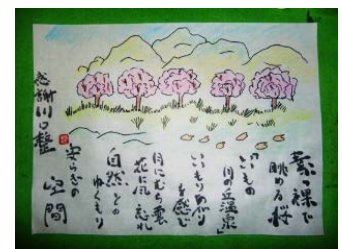 素っ裸で
眺める桜
いつもの
月の丘温泉
いつものべり
を感じ
月にむら雲
花に風 忘れ
自然との
ぬくもり
安らぎの
空間
感謝 川口整